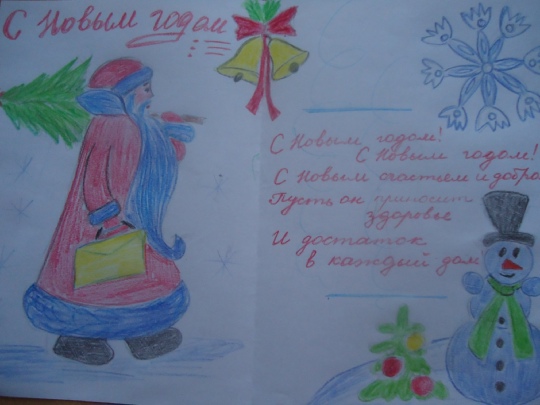 С Новым годом
С Новым годом!
С Новым годом!
С Новым счастьем и добра
Пусть он приносит
здоровье
И достаток
в каждый дом